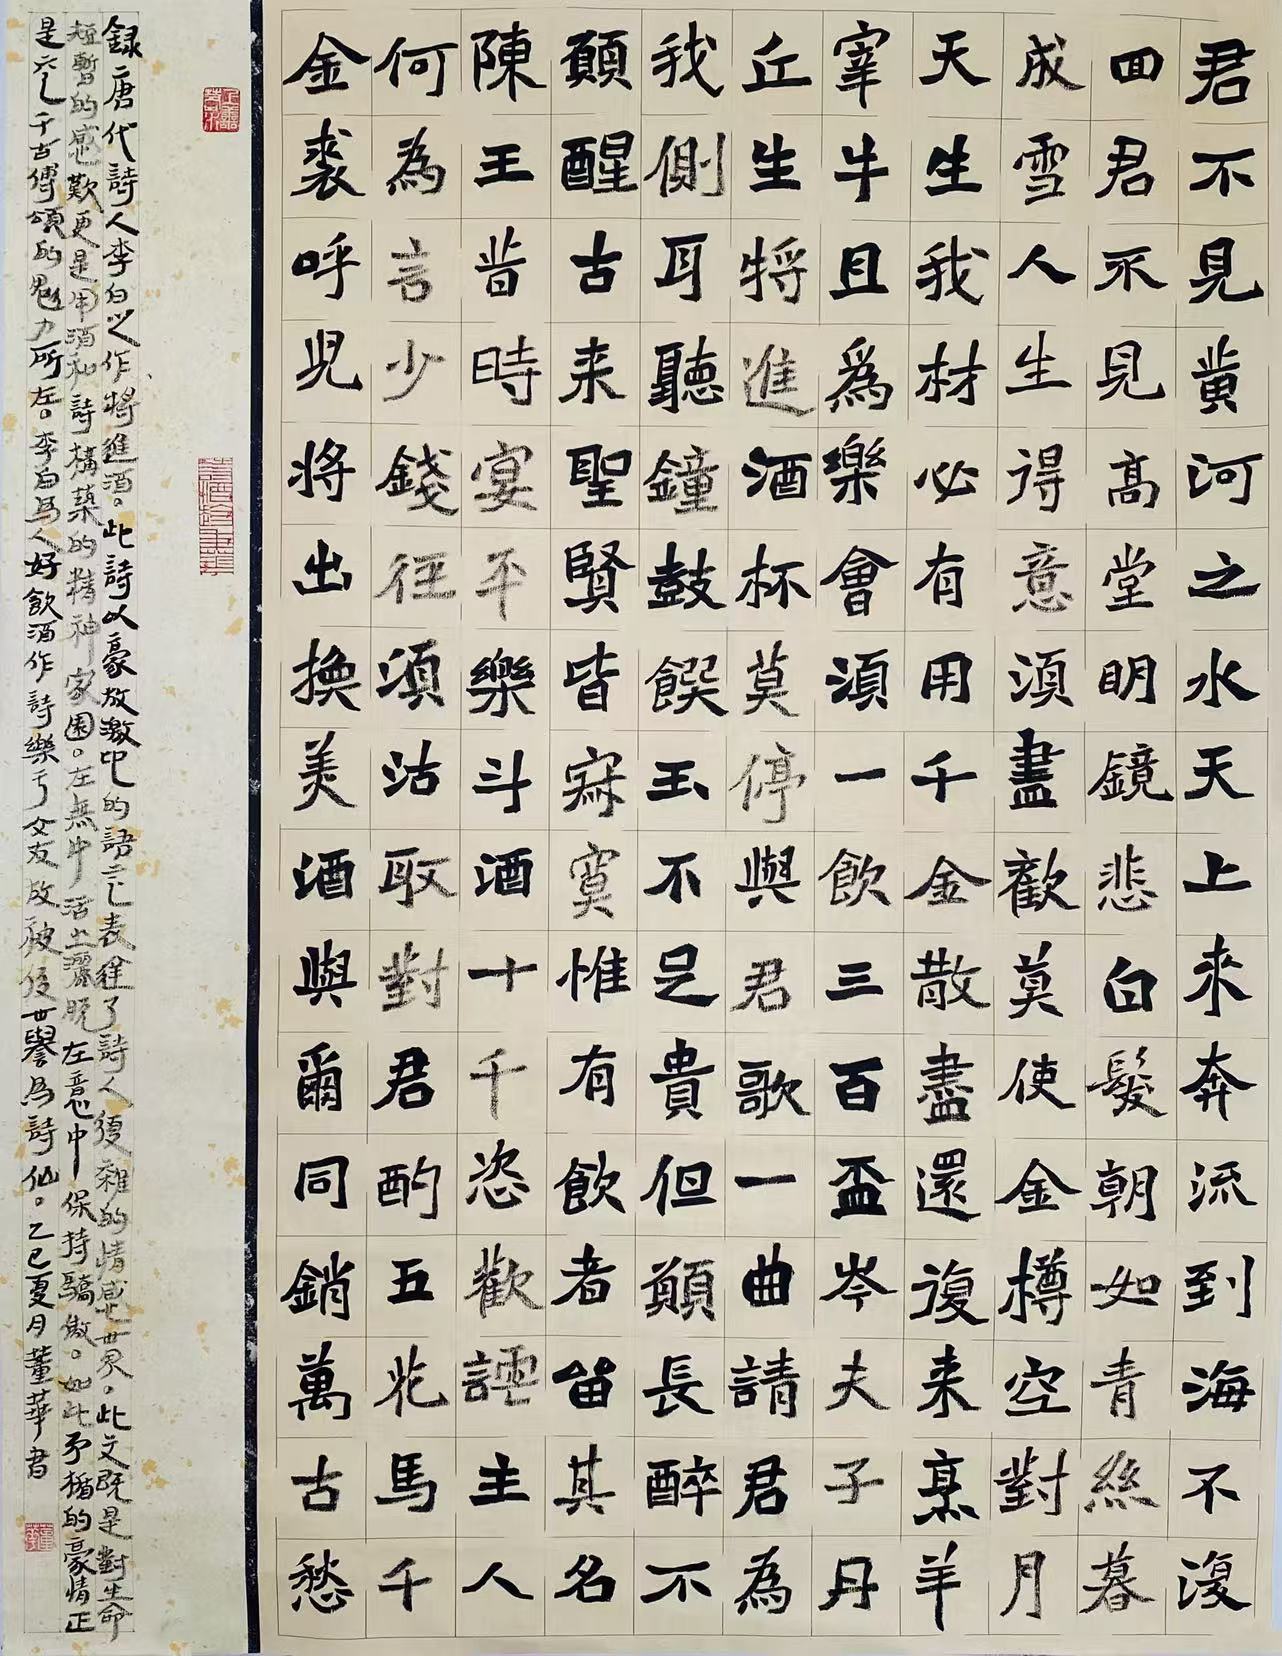 君不見黃河之水天上來奔流到海不復
回君不見高堂明鏡悲白髮朝如青絲暮
成雪人生得意須盡歡莫使金樽空對月
天生我材必有用千金散盡還復来烹羊
宰牛且爲樂會須一飲三百盃岑夫子丹
丘生將進酒杯莫停與君歌一曲請君為
我側耳聽鐘鼓饌玉不足貴但願長醉不
願醒古来聖賢皆寂寞惟有飲者留其名
陳王昔時宴平樂斗酒十千恣歡謔主人
何為言少錢徑須沽取對君酌五花馬千
金裘呼兒將出換美酒與爾同銷萬古愁
録唐代詩人李白之作將進酒。此詩以豪放激昂的語言表達了詩人復雜的情感世界。此文既是對生命
短暫的感歎更是用酒和詩構築的精神家園。在無中活出灑脫在意中保持驕傲。如此矛循的豪情正
是六乙千古傅頌的魅力所在。李白爲人好飲酒作詩樂于交友故被後世譽爲詩仙。乙巳夏月董華書